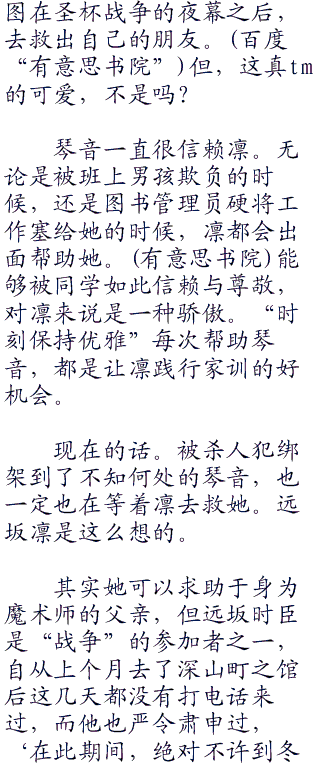 图在圣杯战争的夜幕之后，
去救出自己的朋友。(百度
“有意思书院”)但，这真tm
的可爱，不是吗？
琴音一直很信赖凛。无
论是被班上男孩欺负的时
候，还是图书管理员硬将工
作塞给她的时候，凛都会出
面帮助她。(有意思书院)能
够被同学如此信赖与尊敬，
对凛来说是一种骄傲。“时
刻保持优雅”每次帮助琴
音，都是让凛践行家训的好
机会。
现在的话。被杀人犯绑
架到了不知何处的琴音，也
一定也在等着凛去救她。远
坂凛是这么想的。
其实她可以求助于身为
魔术师的父亲，但远坂时臣
是“战争”的参加者之一，
自从上个月去了深山町之馆
后这几天都没有打电话来
过，而他也严令肃申过，
‘在此期间，绝对不许到冬